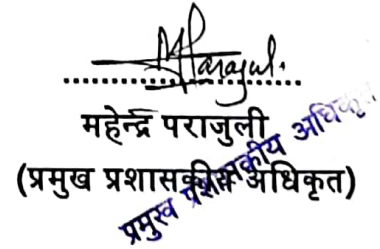 महेन्द्र पराजुली
(प्रमुख प्रशासकीय अधिकृत)
प्रमुख प्रशासकीय अधिकृत